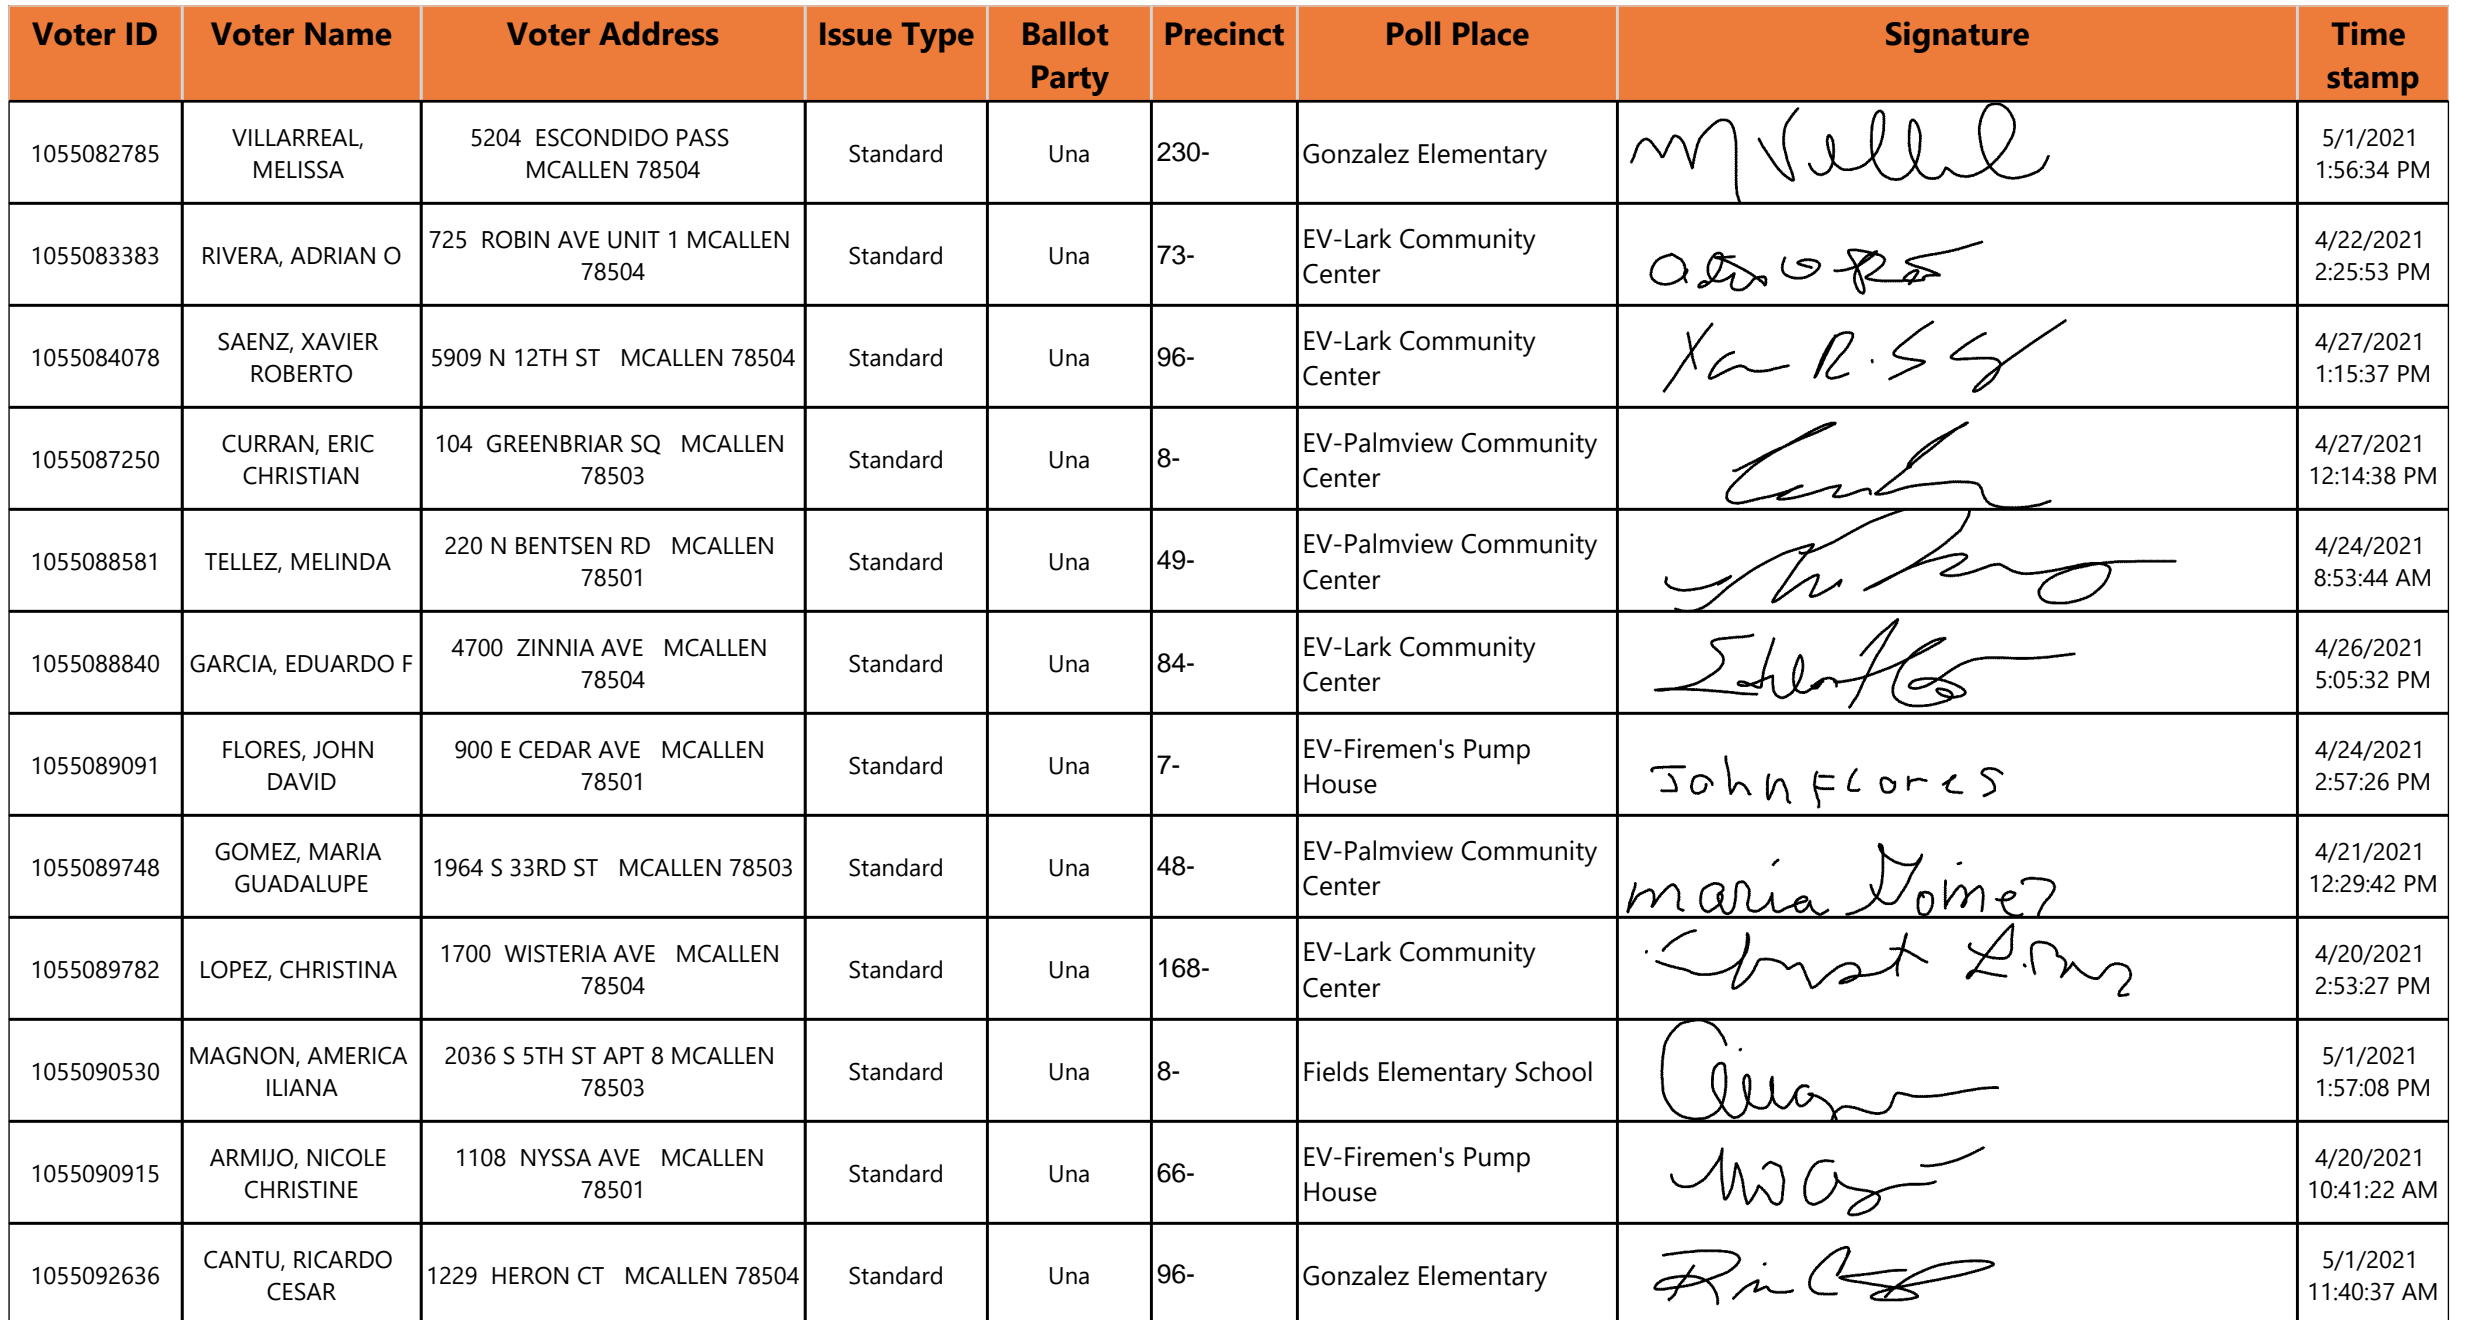 Voter ID Voter Name Voter Address Issue Type Ballot Party Precinct Poll Place Signature Time stamp
1055082785 VILLARREAL, MELISSA 5204 ESCONDIDO PASS MCALLEN 78504 Standard Una 230- Gonzalez Elementary M Villarreal 5/1/2021 1:56:34 PM
1055083383 RIVERA, ADRIAN O 725 ROBIN AVE UNIT 1 MCALLEN 78504 Standard Una 73- EV-Lark Community Center 4/22/2021 2:25:53 PM
1055084078 SAENZ, XAVIER ROBERTO 5909 N 12TH ST MCALLEN 78504 Standard Una 96- EV-Lark Community Center 4/27/2021 1:15:37 PM
1055087250 CURRAN, ERIC CHRISTIAN 104 GREENBRIAR SQ MCALLEN 78503 Standard Una 8- EV-Palmview Community Center 4/27/2021 12:14:38 PM
1055088581 TELLEZ, MELINDA 220 N BENTSEN RD MCALLEN 78501 Standard Una 49- EV-Palmview Community Center 4/24/2021 8:53:44 AM
1055088840 GARCIA, EDUARDO F 4700 ZINNIA AVE MCALLEN 78504 Standard Una 84- EV-Lark Community Center 4/26/2021 5:05:32 PM
1055089091 FLORES, JOHN DAVID 900 E CEDAR AVE MCALLEN 78501 Standard Una 7- EV-Firemen's Pump House John Flores 4/24/2021 2:57:26 PM
1055089748 GOMEZ, MARIA GUADALUPE 1964 S 33RD ST MCALLEN 78503 Standard Una 48- EV-Palmview Community Center maria Gomez 4/21/2021 12:29:42 PM
1055089782 LOPEZ, CHRISTINA 1700 WISTERIA AVE MCALLEN 78504 Standard Una 168- EV-Lark Community Center 4/20/2021 2:53:27 PM
1055090530 MAGNON, AMERICA ILIANA 2036 S 5TH ST APT 8 MCALLEN 78503 Standard Una 8- Fields Elementary School 5/1/2021 1:57:08 PM
1055090915 ARMIJO, NICOLE CHRISTINE 1108 NYSSA AVE MCALLEN 78501 Standard Una 66- EV-Firemen's Pump House 4/20/2021 10:41:22 AM
1055092636 CANTU, RICARDO CESAR 1229 HERON CT MCALLEN 78504 Standard Una 96- Gonzalez Elementary 5/1/2021 11:40:37 AM